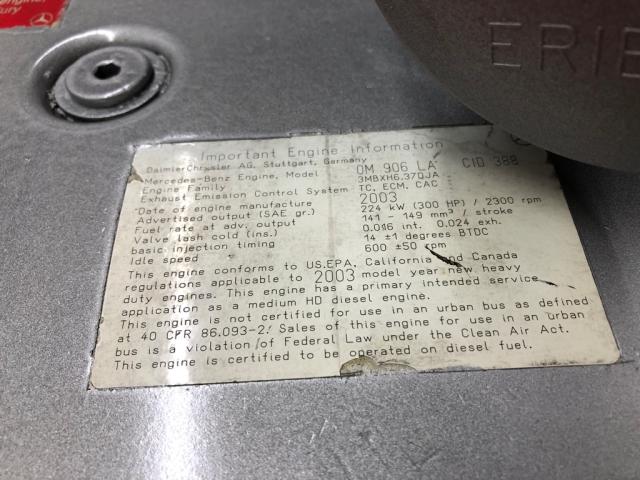 engine,
ury
ERIE
Important Engine Information
DaimlerChrysler AG, Stuttgart, Germany
Mercedes-Benz Engine, Model OM 906 LA CID 388
Engine Family 3MBXH6.37DJA
Exhaust Emission Control System TC, ECM, CAC
Date of engine manufacture 2003
Advertised output (SAE gr.) 224 kW (300 HP) / 2300 rpm
Fuel rate at adv. output 141 - 149 mm³ / stroke
Valve lash cold (ins.) 0.016 int. 0.024 exh.
basic injection timing 14 ±1 degrees BTDC
Idle speed 600 ±50 rpm
This engine conforms to US.EPA, California and Canada
regulations applicable to 2003 model year new heavy
duty engines. This engine has a primary intended service
application as a medium HD diesel engine.
This engine is not certified for use in an urban bus as defined
at 40 CFR 86.093-2. Sales of this engine for use in an urban
bus is a violation of Federal Law under the Clean Air Act.
This engine is certified to be operated on diesel fuel.